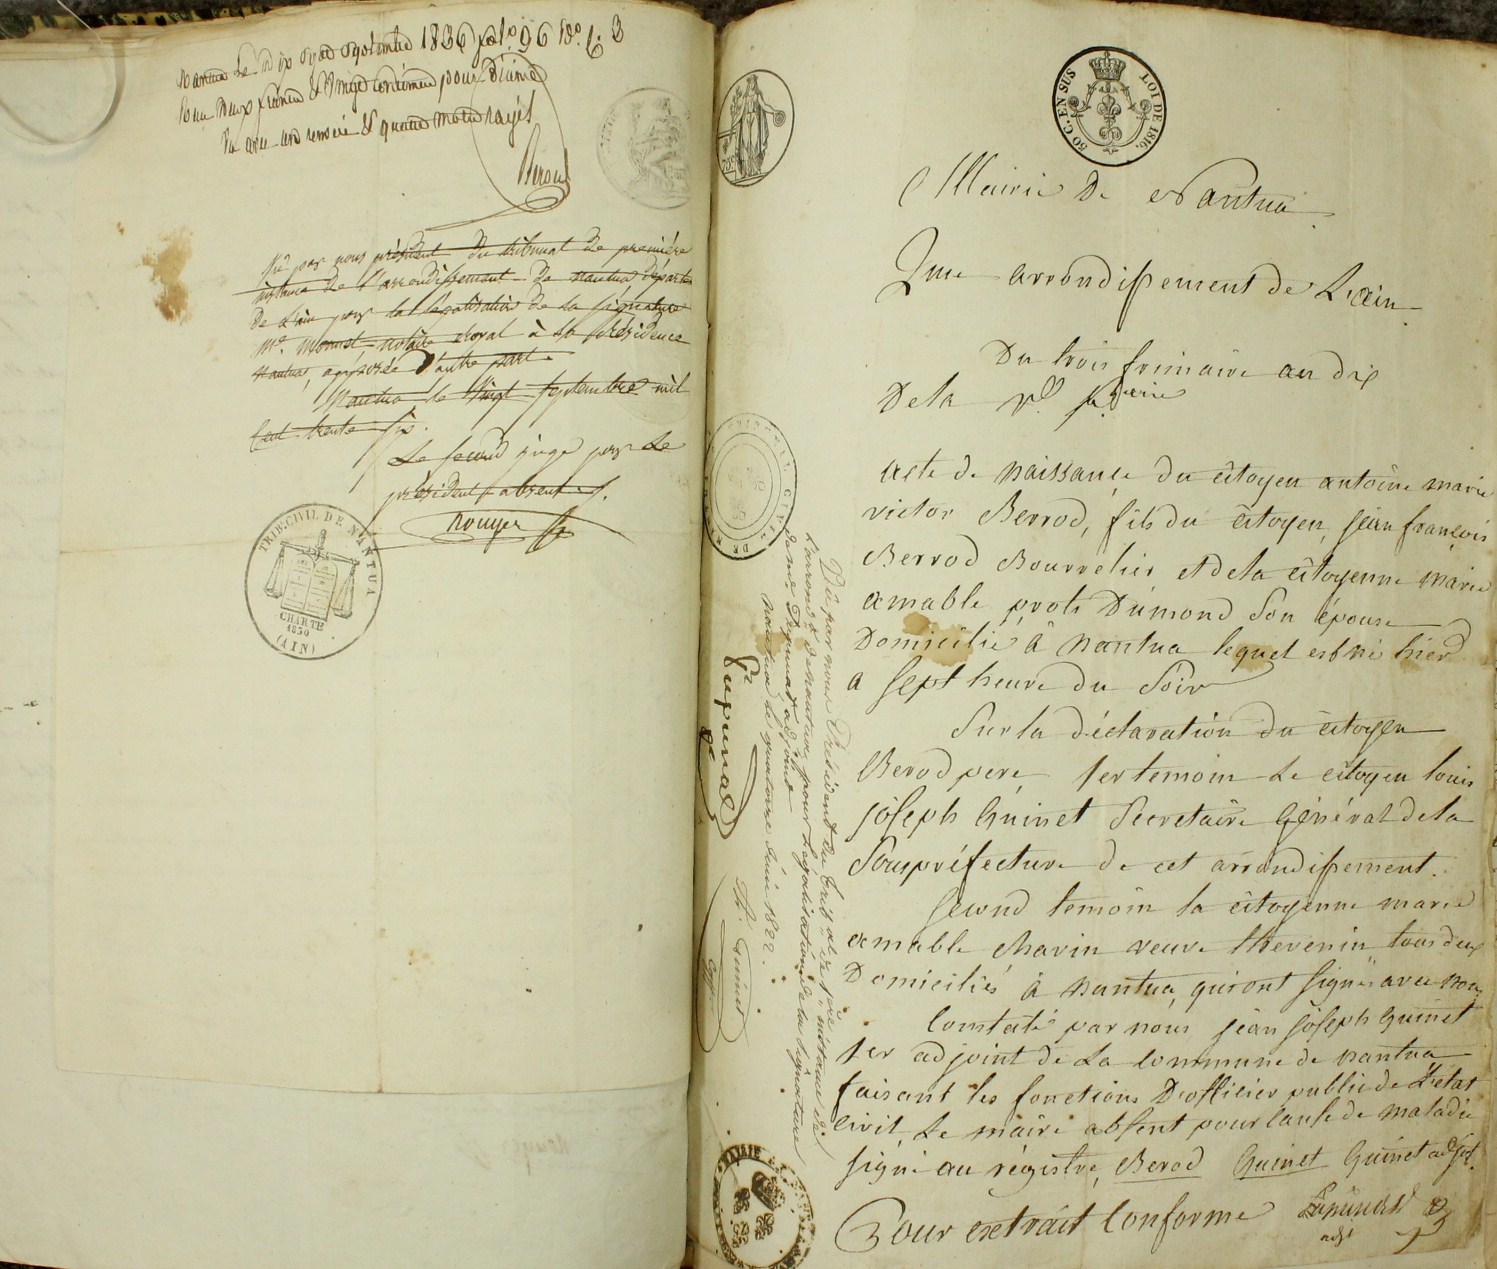 nantua le dix sept septembre 1836 fol. 96 Vo. C. 3
deux francs & vingt centimes pour dixième
renvoi & quatre mots rayés
Vu par nous président du tribunal de première
instance de l'arrondissement de nantua départ.
de L'ain pour la légalisation de la signature
Me. Monnet notaire royal à la résidence
nantua, apposée d'autre part.
Nantua le Vingt septembre mil
Cent trente six.
Le second juge pour Le
président absent.
Rouyer
TRIB. CIVIL DE NANTUA
CHARTE
1830
(AIN)
50 C. EN SUS
LOI DE 1816.
Mairie De Nantua
2me arrondissement de L'ain
Du trois frimaire an dix
De la
acte de naissance du citoyen antoine marie
victor Berrod, fils du citoyen, jean françois
Berrod Bourrelier et de la citoyenne marie
aimable prots Dumond Son épouse
Domicilié à nantua lequel est né hier
a sept heure du Soir
Sur la déclaration du citoyen
Berod pere 1er temoin Le citoyen louis
joseph Guinet Secretaire Général de la
Souspréfecture de cet arrondissement.
second temoin la citoyenne marie
aimable Chavin veuve thevenin tous deux
Domiciliés à nantua, qui ont signé avec nous
Constaté par nous jean joseph Guinet
1er adjoint de La commune de nantua
faisant les fonctions D'officier public de L'état
civil, Le maire absent pour cause de maladie
signé au régistre, Berod Guinet Guinet adjt.
Pour extrait Conforme
adjt
Vu par nous Président du trib.al de 1re instance de
L'arrond.t de nantua, pour Légalisation de la Signature
adjoint
nantua le quatorze juin 1822.